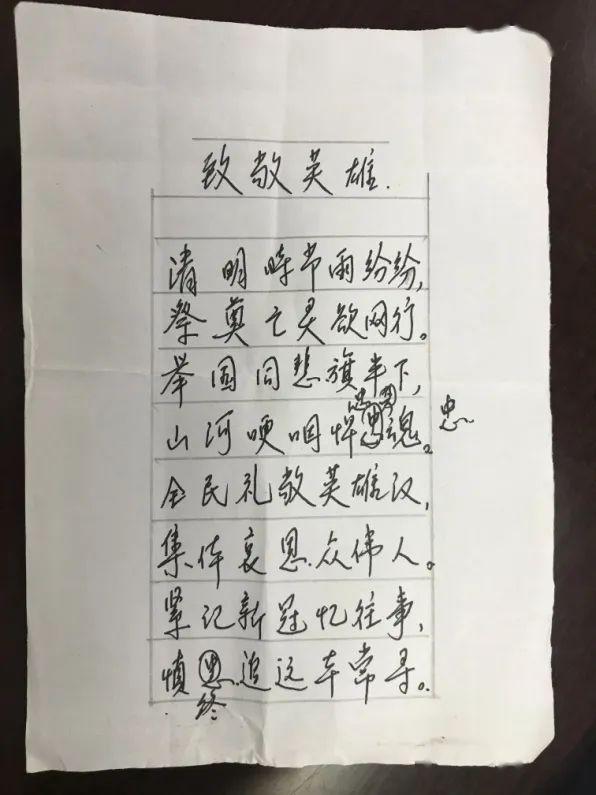 致敬英雄.
清明时节雨纷纷,
祭奠亡灵欲网行。
举国同悲旗半下,
山河哽咽悼忠魂。
忠
全民礼敬英雄汉,
集体哀思众伟人。
紧记新冠忆往事,
慎思追远车常寻。
终